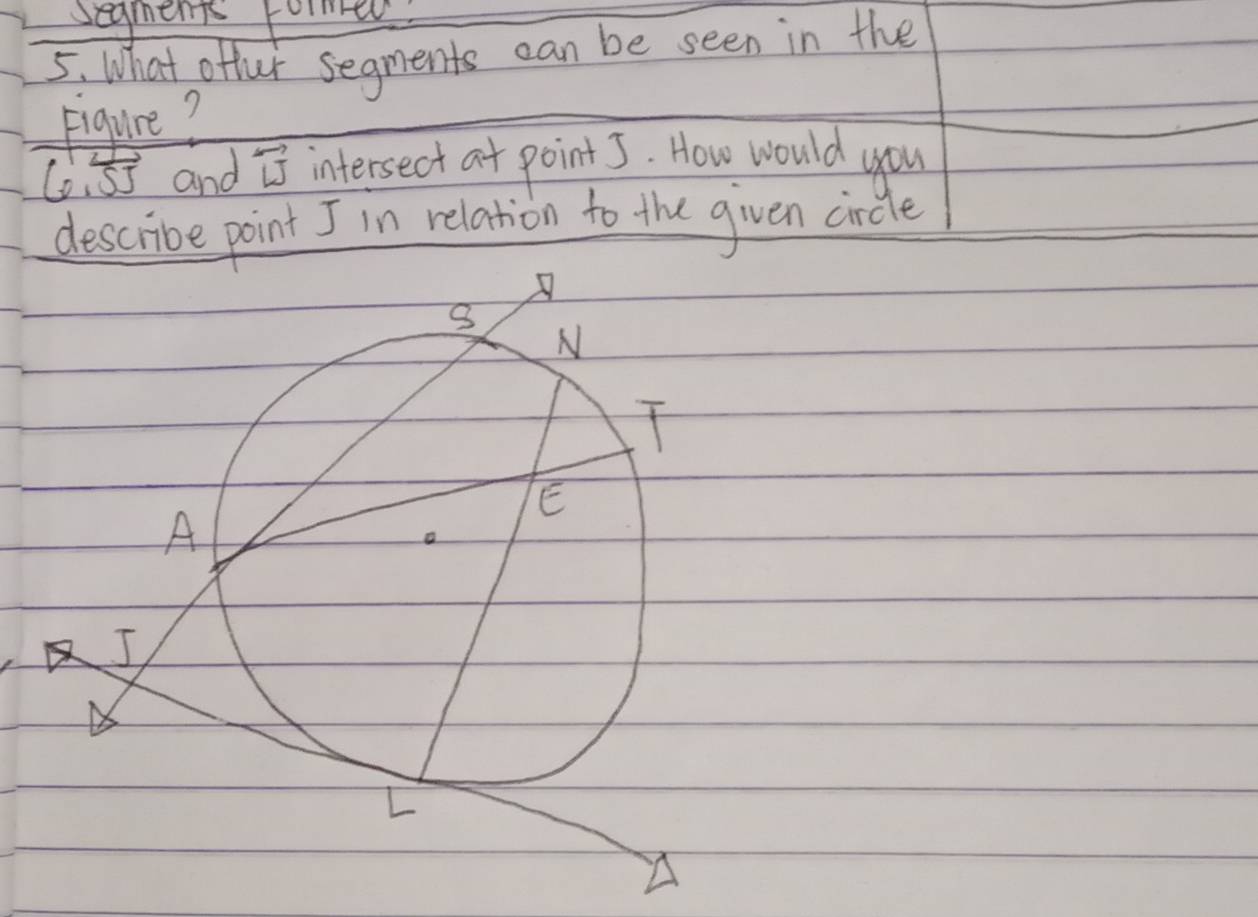 segments formed?
5. What other segments can be seen in the
Figure?
6. SJ and LJ intersect at point J. How would you
describe point J in relation to the given circle
S
N
T
E
A
J
L